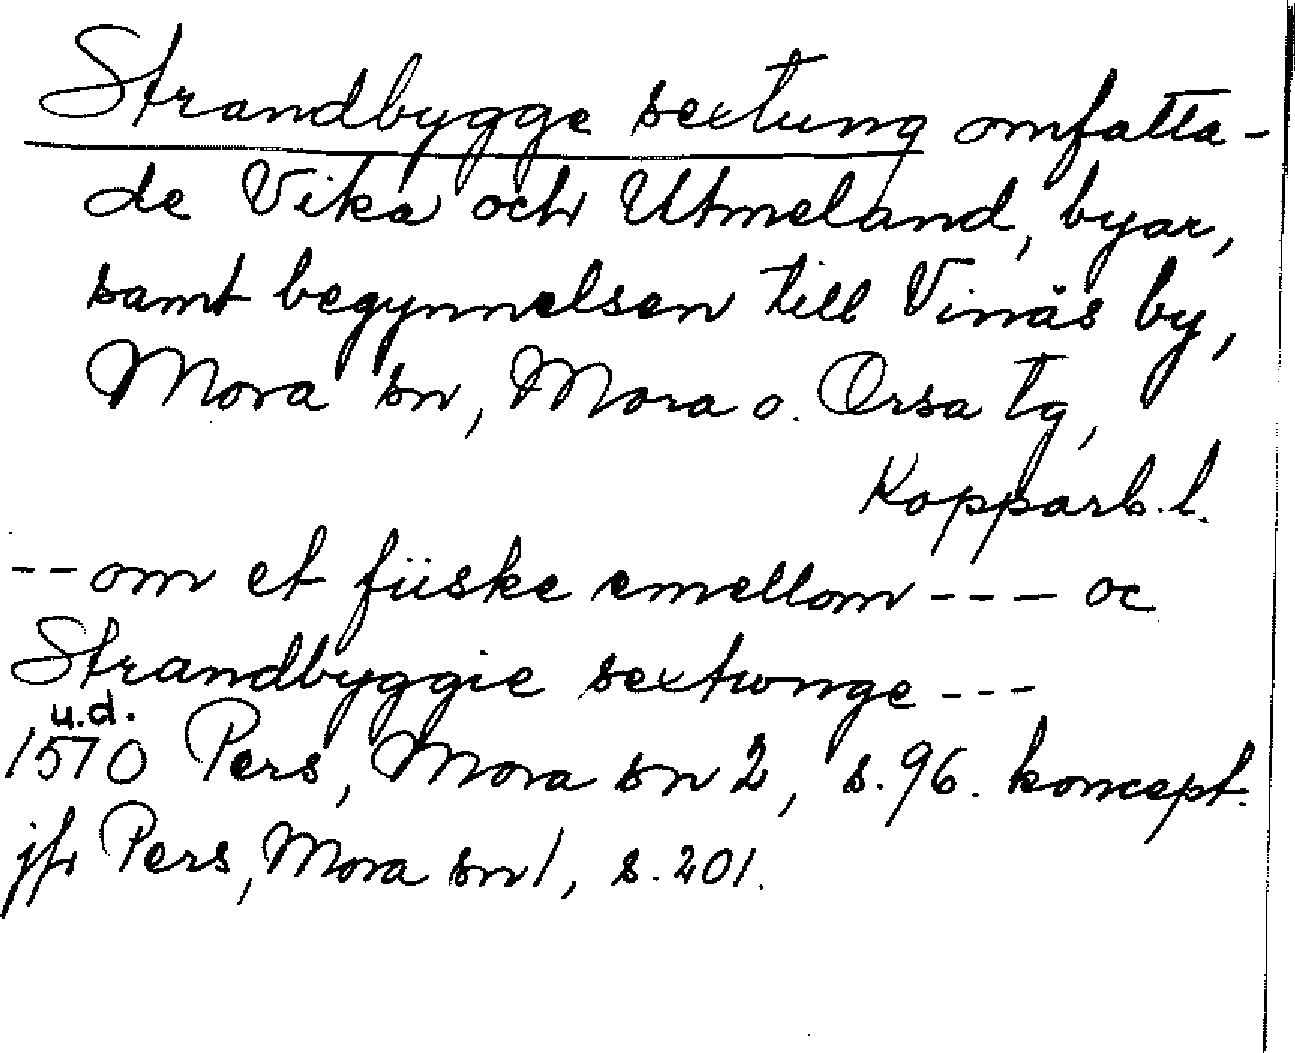 Strandbygge sextung omfatta-
de Vika och Utmeland, byar,
samt begynnelsen till Vinäs by,
Mora sn, Mora o. Orsa tg,
Kopparb. l.
-- om et fiiske emellom --- oc
Strandbyggie sextwnge ---
u.d.
1570 Pers, Mora sn 2, s. 96. koncept.
jfr Pers, Mora sn 1, s. 201.